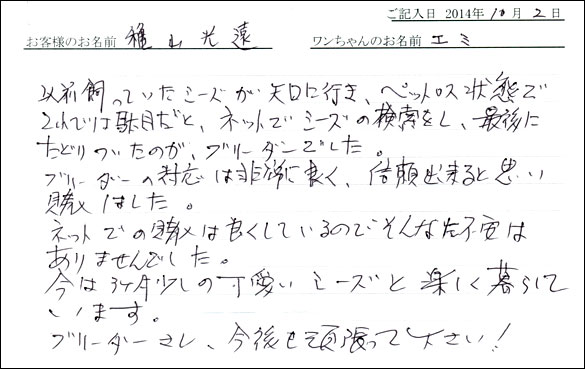 ご記入日 2014年10月2日
お客様のお名前 雅山光遠 ワンちゃんのお名前 エミ
以前飼っていたシーズが天国に行き、ペットロス状態で
これでは駄目だと、ネットでシーズの検索をし、最後に
たどりついたのが、ブリーダーでした。
ブリーダーの対応は非常に良く、信頼出来ると思い
購入しました。
ネットでの購入は良くしているのでそんなに不安は
ありませんでした。
今は3ヶ月少しの可愛いシーズと楽しく暮らして
います。
ブリーダーさん、今後も頑張って下さい!